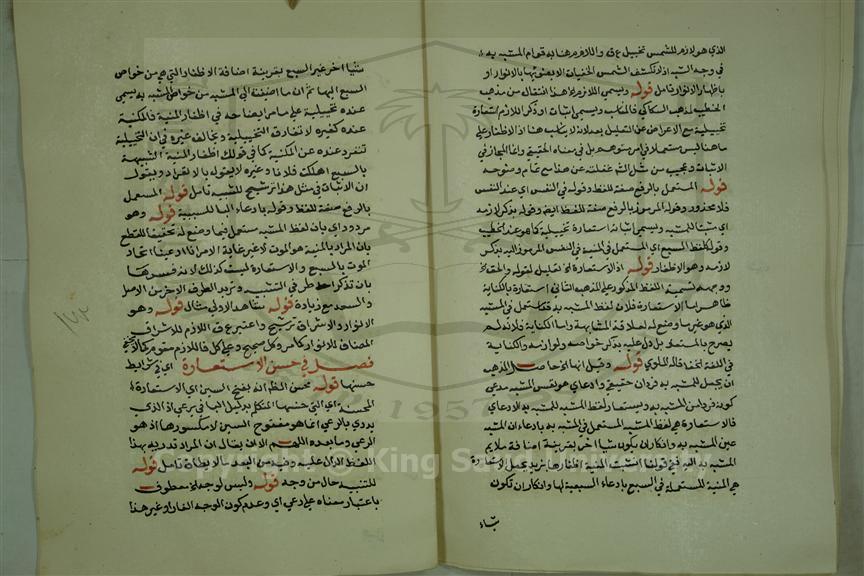 الذي هو لازم للشمس تخييل عرق واللازم هنا به قوام المشبه به
في وجه الشبه اذ لا تكشف الشمس الخفيات الا بضوئها بالانوار او
باظهار الانوار تامل قوله ويسمى اللازم الخ هذا انتقال من مذهب
الخطيب لمذهب السكاكي فالمناسب ويسمى اثبات او ذكر اللازم استعارة
تخييلية مع الاعراض عن التعليل بعد لانه لا يناسب هذا اذ الاظفار على
ما هنا ليس مستعملا في امر متوهم بل في معناه الحقيقي وانما المجاز في
الاثبات وعجيب من مثل الشم غفلته عن هذا مع
قوله المستعمل بالرفع صفة للفظ وقوله في النفس اي عند النفس
فلا محذور وقوله المرموز بالرفع صفة للفظ ايضا وقوله بذكر لازمه
اي مثبتا للمشبه ويسمى اثباته استعارة تخييلية كما هو عند الخطيب
وقوله كلفظ السبع اي المستعمل في المنية في النفس المرموز اليه بذكر
لازمه وهو الاظفار قوله اذ الاستعارة الخ تعليل لقوله والحق الخ
ووجه تسمية اللفظ المذكور على المذهب الثاني استعارة بالكناية
ظاهر اما الاستعارة فلان لفظ المشبه به قد استعمل في المشبه
الذي هو غير ما وضع له لعلاقة المشابهة واما الكناية فلانه لم
يصرح بالمستعمل بل دل عليه بذكر خواصه ولوازمه والكناية
في اللغة الخفا قاله الملوي قوله وقيل انها الخ حاصل المذهب
ان يجعل للمشبه به فردان حقيقي وادعاي هو نفس المشبه مدعي
كونه فردا من المشبه به ويستعمل لفظ المشبه للمشبه به الادعاي
فالاستعارة هي لفظ المشبه المستعمل في المشبه به بادعاء ان المشبه
عين المشبه به وانكار ان يكون شيا اخر بقرينة اضافة ملايم
المشبه به اليه ففي قولنا انشبت المنية اظفارها نريد بجعل الاستعارة
هي المنية المستعملة في السبع بادعاء السبعية لها وانكار ان تكون
شيا
شيئا اخر غير السبع بقرينة اضافة الاظفار التي هي من خواص
السبع اليها ثم ان ما اضيفته الى المشبه من خواص المشبه به يسمى
عنده تخييلية على ما مر ايضاحه في اظفار المنية فالمكنية
عنده كغيره لا تفارق التخييلية ويخالف غيره في ان التخييلية
تنفرد عنده عن المكنية كما في قولك اظفار المنية الشبيهة
بالسبع اهلكت فلانا وغيره لا يقوله بالانفراد ويقول
ان الاثبات في مثل هذا ترشيح للتشبيه تامل قوله المستعمل
بالرفع صفة للفظ وقوله بادعاء البا للسببية قوله وهو
مردود اي بان لفظ المشبه مستعمل فيما وضع له تحقيقا للقطع
بان المراد بالمنية هو الموت لا غير غاية الامر انا ادعينا اتحاد
الموت بالسبع والاستعارة ليست كذلك لانه فسرها
بان تذكر احد طرفي التشبيه وتريد الطرف الاخر من الاصل
والسعد مع زيادة قوله شاهد الاولي مثال قوله وهو
الانوار والاشراق ترشيح واعتبر عرق اللازم للاشراق
المضاف للانوار كما مر وكل صحيح وعلى كل فاللازم مقوم
فصل في حسن الاستعارة اي في شرايط
حسنها قوله محسن الظم انه بفتح السين اي الاستعارة
المحسنة اي التي حسنها المتكلم بدليل البا في برعي اذ الذي
يؤدي بالرعي انما هو مفتوح السين لا مكسورها اذ هو
الرعي وما بعده اللهم الا ان يقال ان المراد تعديه بهذا
اللفظ الدال عليه وفيه من البعد ما لا يطاق تامل قوله
للتشبيه حال من وجه قوله وليس لوجه الخ معطوف
باعتبار معناه على رعي اي وعدم كون الوجه الغازا وغير هذا